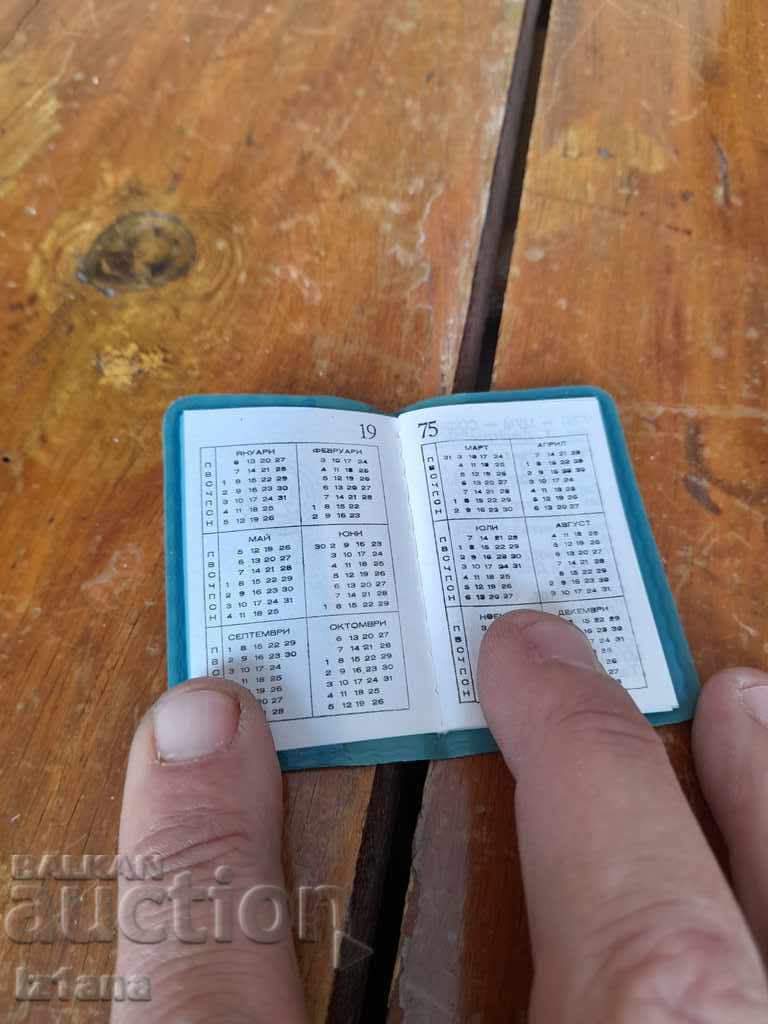 19
75
ЯНУАРИ
ФЕВРУАРИ
П 6 13 20 27
3 10 17 24
В 7 14 21 28
4 11 18 25
С 1 8 15 22 29
5 12 19 26
Ч 2 9 16 23 30
6 13 20 27
П 3 10 17 24 31
7 14 21 28
С 4 11 18 25
1 8 15 22
Н 5 12 19 26
2 9 16 23
МАРТ
АПРИЛ
П 31 3 10 17 24
7 14 21 28
В 4 11 18 25
1 8 15 22 29
С 5 12 19 26
2 9 16 23 30
Ч 6 13 20 27
3 10 17 24
П 7 14 21 28
4 11 18 25
С 1 8 15 22 29
5 12 19 26
Н 2 9 16 23 30
6 13 20 27
МАЙ
ЮНИ
П 5 12 19 26
30 2 9 16 23
В 6 13 20 27
3 10 17 24
С 7 14 21 28
4 11 18 25
Ч 1 8 15 22 29
5 12 19 26
П 2 9 16 23 30
6 13 20 27
С 3 10 17 24 31
7 14 21 28
Н 4 11 18 25
1 8 15 22 29
ЮЛИ
АВГУСТ
П 7 14 21 28
4 11 18 25
В 1 8 15 22 29
5 12 19 26
С 2 9 16 23 30
6 13 20 27
Ч 3 10 17 24 31
7 14 21 28
П 4 11 18 25
1 8 15 22 29
С 5 12 19 26
2 9 16 23 30
Н 6 13 20 27
3 10 17 24 31
СЕПТЕМВРИ
ОКТОМВРИ
П 1 8 15 22 29
6 13 20 27
В 2 9 16 23 30
7 14 21 28
С 3 10 17 24
1 8 15 22 29
18 25
2 9 16 23 30
19 26
3 10 17 24 31
27
4 11 18 25
28
5 12 19 26
НОЕ
ДЕКЕМВРИ
BALKAN
auction
Iztana